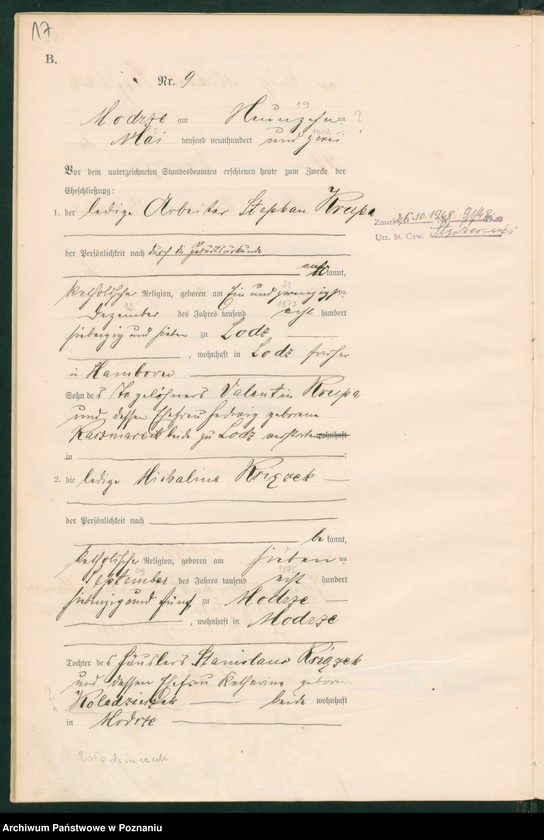 17
B.
Nr. 9.
Modrze am Neunzehn
19
Mai tausend neunhundert und zwei
Vor dem unterzeichneten Standesbeamten erschienen heute zum Zwecke der
Eheschließung:
1. der ledige Arbeiter Stephan Krupa
der Persönlichkeit nach durch die Geburtsurkunde
kannt,
katholischer Religion, geboren am Ein und zwanzigsten
Dezember des Jahres tausend acht hundert
siebenzig und sieben zu Lodz
, wohnhaft in Lodz früher
in Hannover
Sohn des Tagelöhners Valentin Krupa
und dessen Ehefrau Hedwig geborene
beide zu Lodz verstorben wohnhaft
in
2. die ledige Michalina Książek
der Persönlichkeit nach
be kannt,
katholischer Religion, geboren am sieben
September des Jahres tausend acht hundert
siebenzig und fünf zu Modrze
, wohnhaft in Modrze
Tochter des Häuslers Stanislaus Książek
und dessen Ehefrau Katharina geborene
beide wohnhaft
in Modrze
Zmarł 26.10.1948
Urz. St. Cyw.
Archiwum Państwowe w Poznaniu